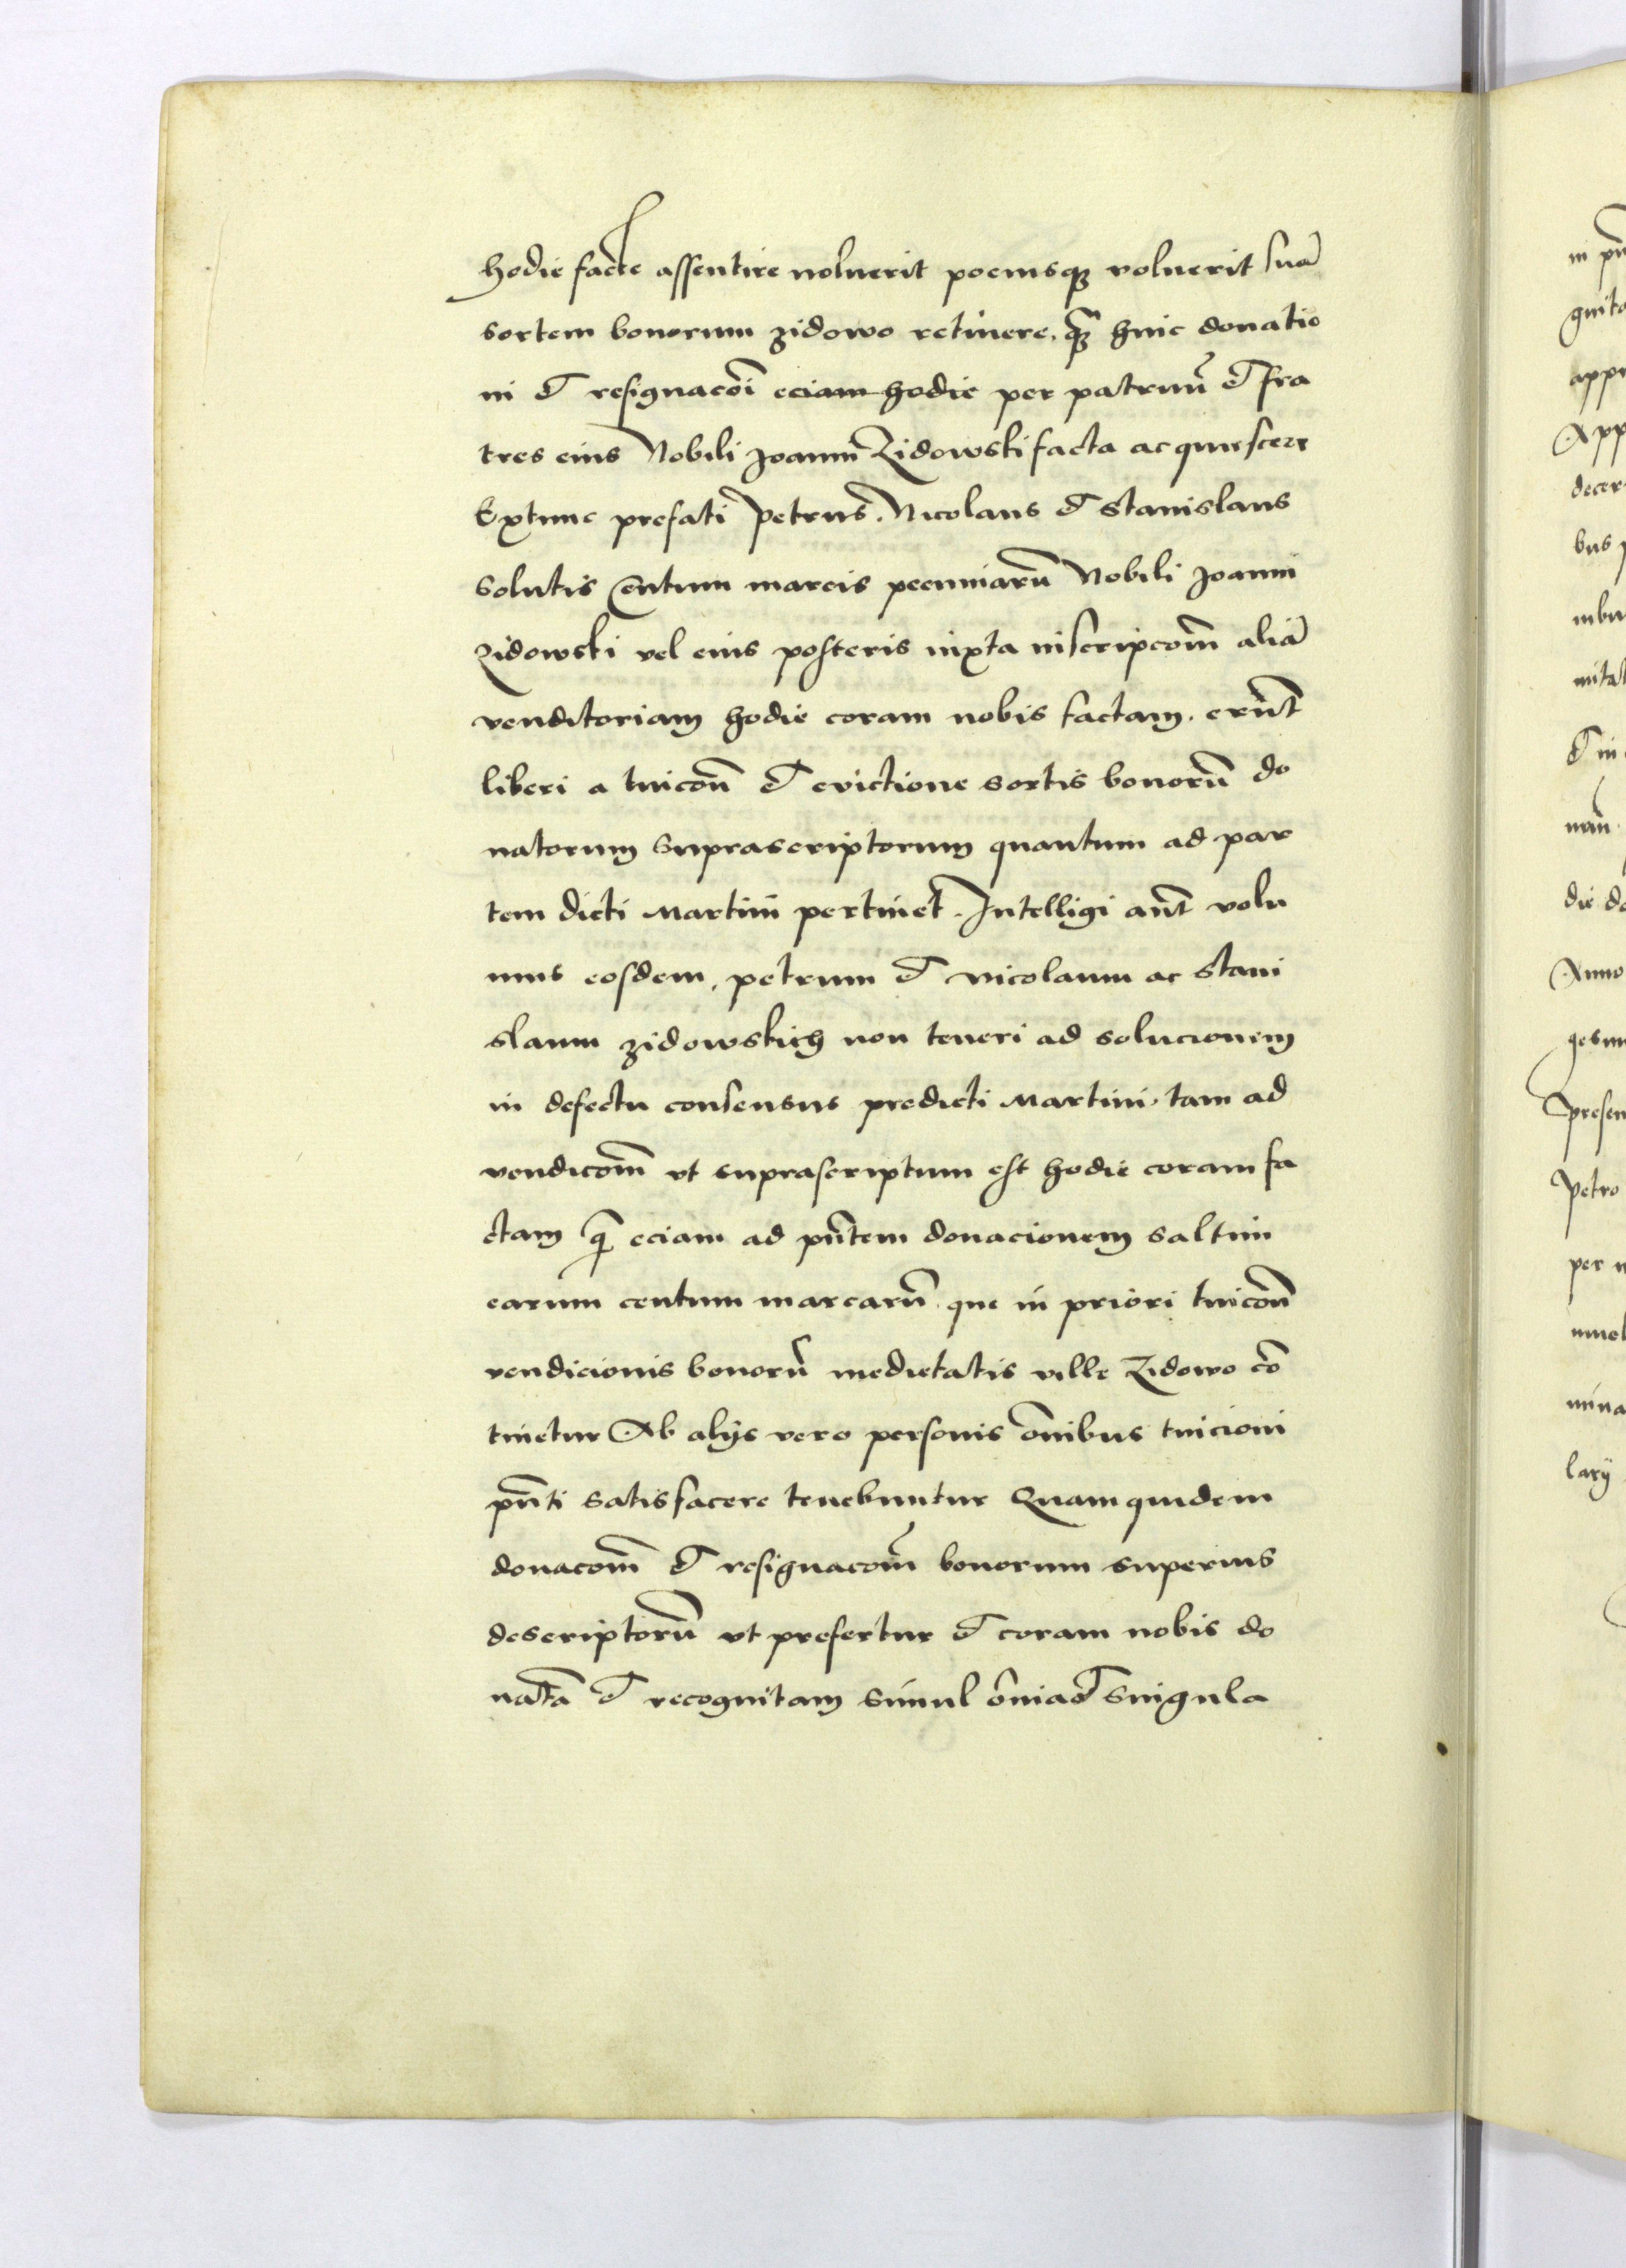 hodie facte assentire noluerit pociusq voluerit suā
sortem bonorum zidowo retinere, q̄ꝫ huic donatio
ni et resignacōi eciam hodie per patruū et fra
tres eius Nobili Joanni Zidowski facta acquiescere
Extunc prefati Petrus, Nicolaus et Stanislaus
solutis Centum marcis pecuniarū Nobili Joanni
Zidowski vel eius posteris iuxta inscripcōm aliā
venditoriam hodie coram nobis factam, erūt
liberi a tuicōn et evictione sortis bonorū do
natorum suprascriptorum quantum ad par
tem dicti Martini pertinet. Intelligi aūt volu
mus eosdem, petrum et nicolaum ac Stani
slaum zidowskich non teneri ad solucionem
in defectu consensus predicti Martini, tam ad
vendicōm vt suprascriptum est hodie coram fa
ctam q̄ eciam ad pn̄tem donacionem saltim
earum centum marcarū que in priori tuicōn
vendicionis bonorū medietatis ville Zidowo cō
tinetur Ab alijs vero personis ōnibus tuicioni
pn̄ti satisfacere tenebuntur Quam quidem
donacōm et resignacōm bonorum superius
descriptorū vt prefertur et coram nobis do
natā et recognitam simul ōnia et singula
in
Anno
Petro
per
lary